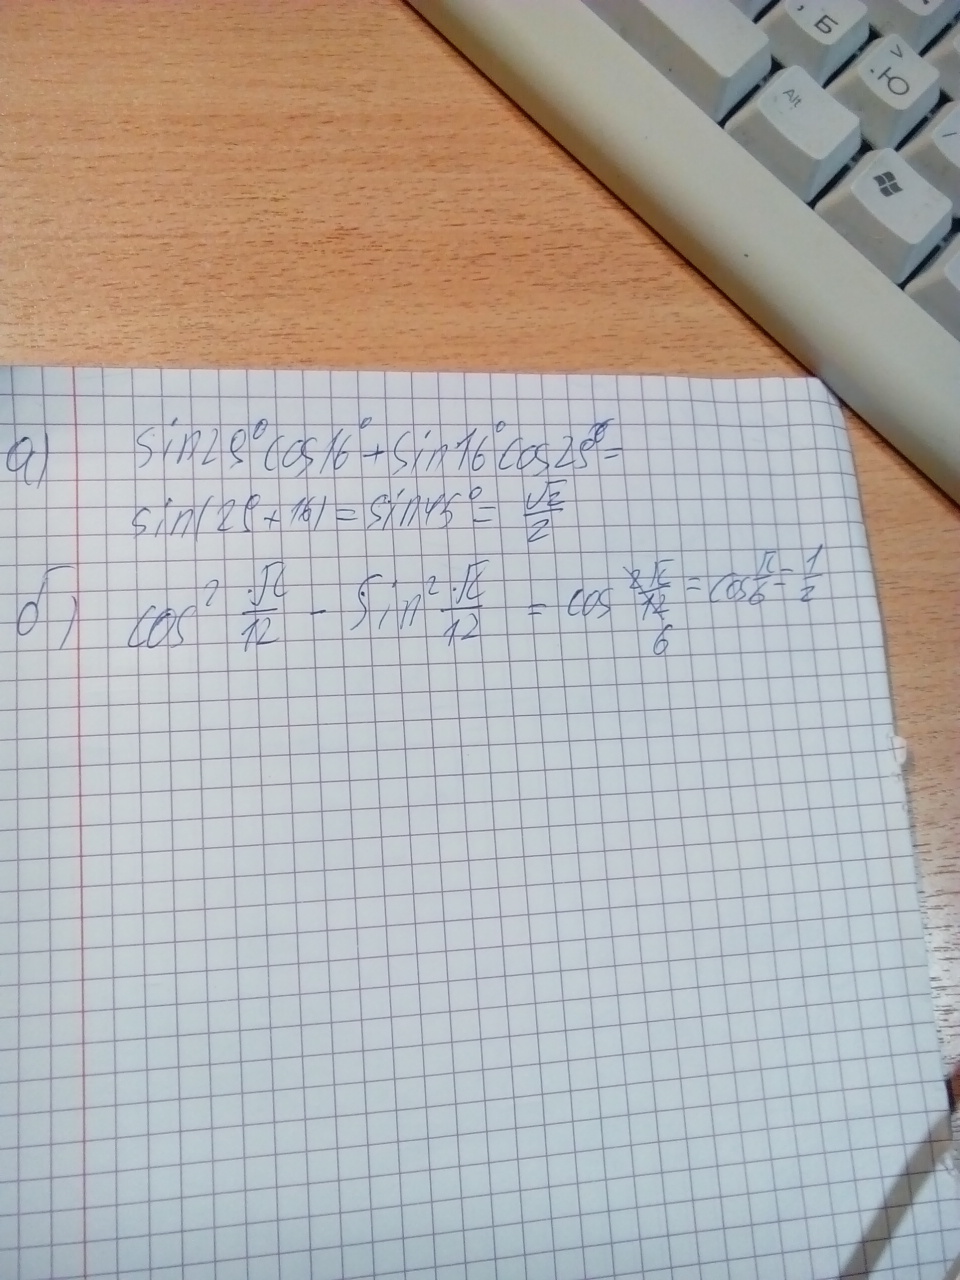 , Б
> . Ю
Alt
/
а) sin29° cos16° + sin16° cos29° =
sin(29 + 16) = sin45° = √2/2
б) cos² π/12 - sin² π/12 = cos 2π/12 6 = cos π/6 = 1/2